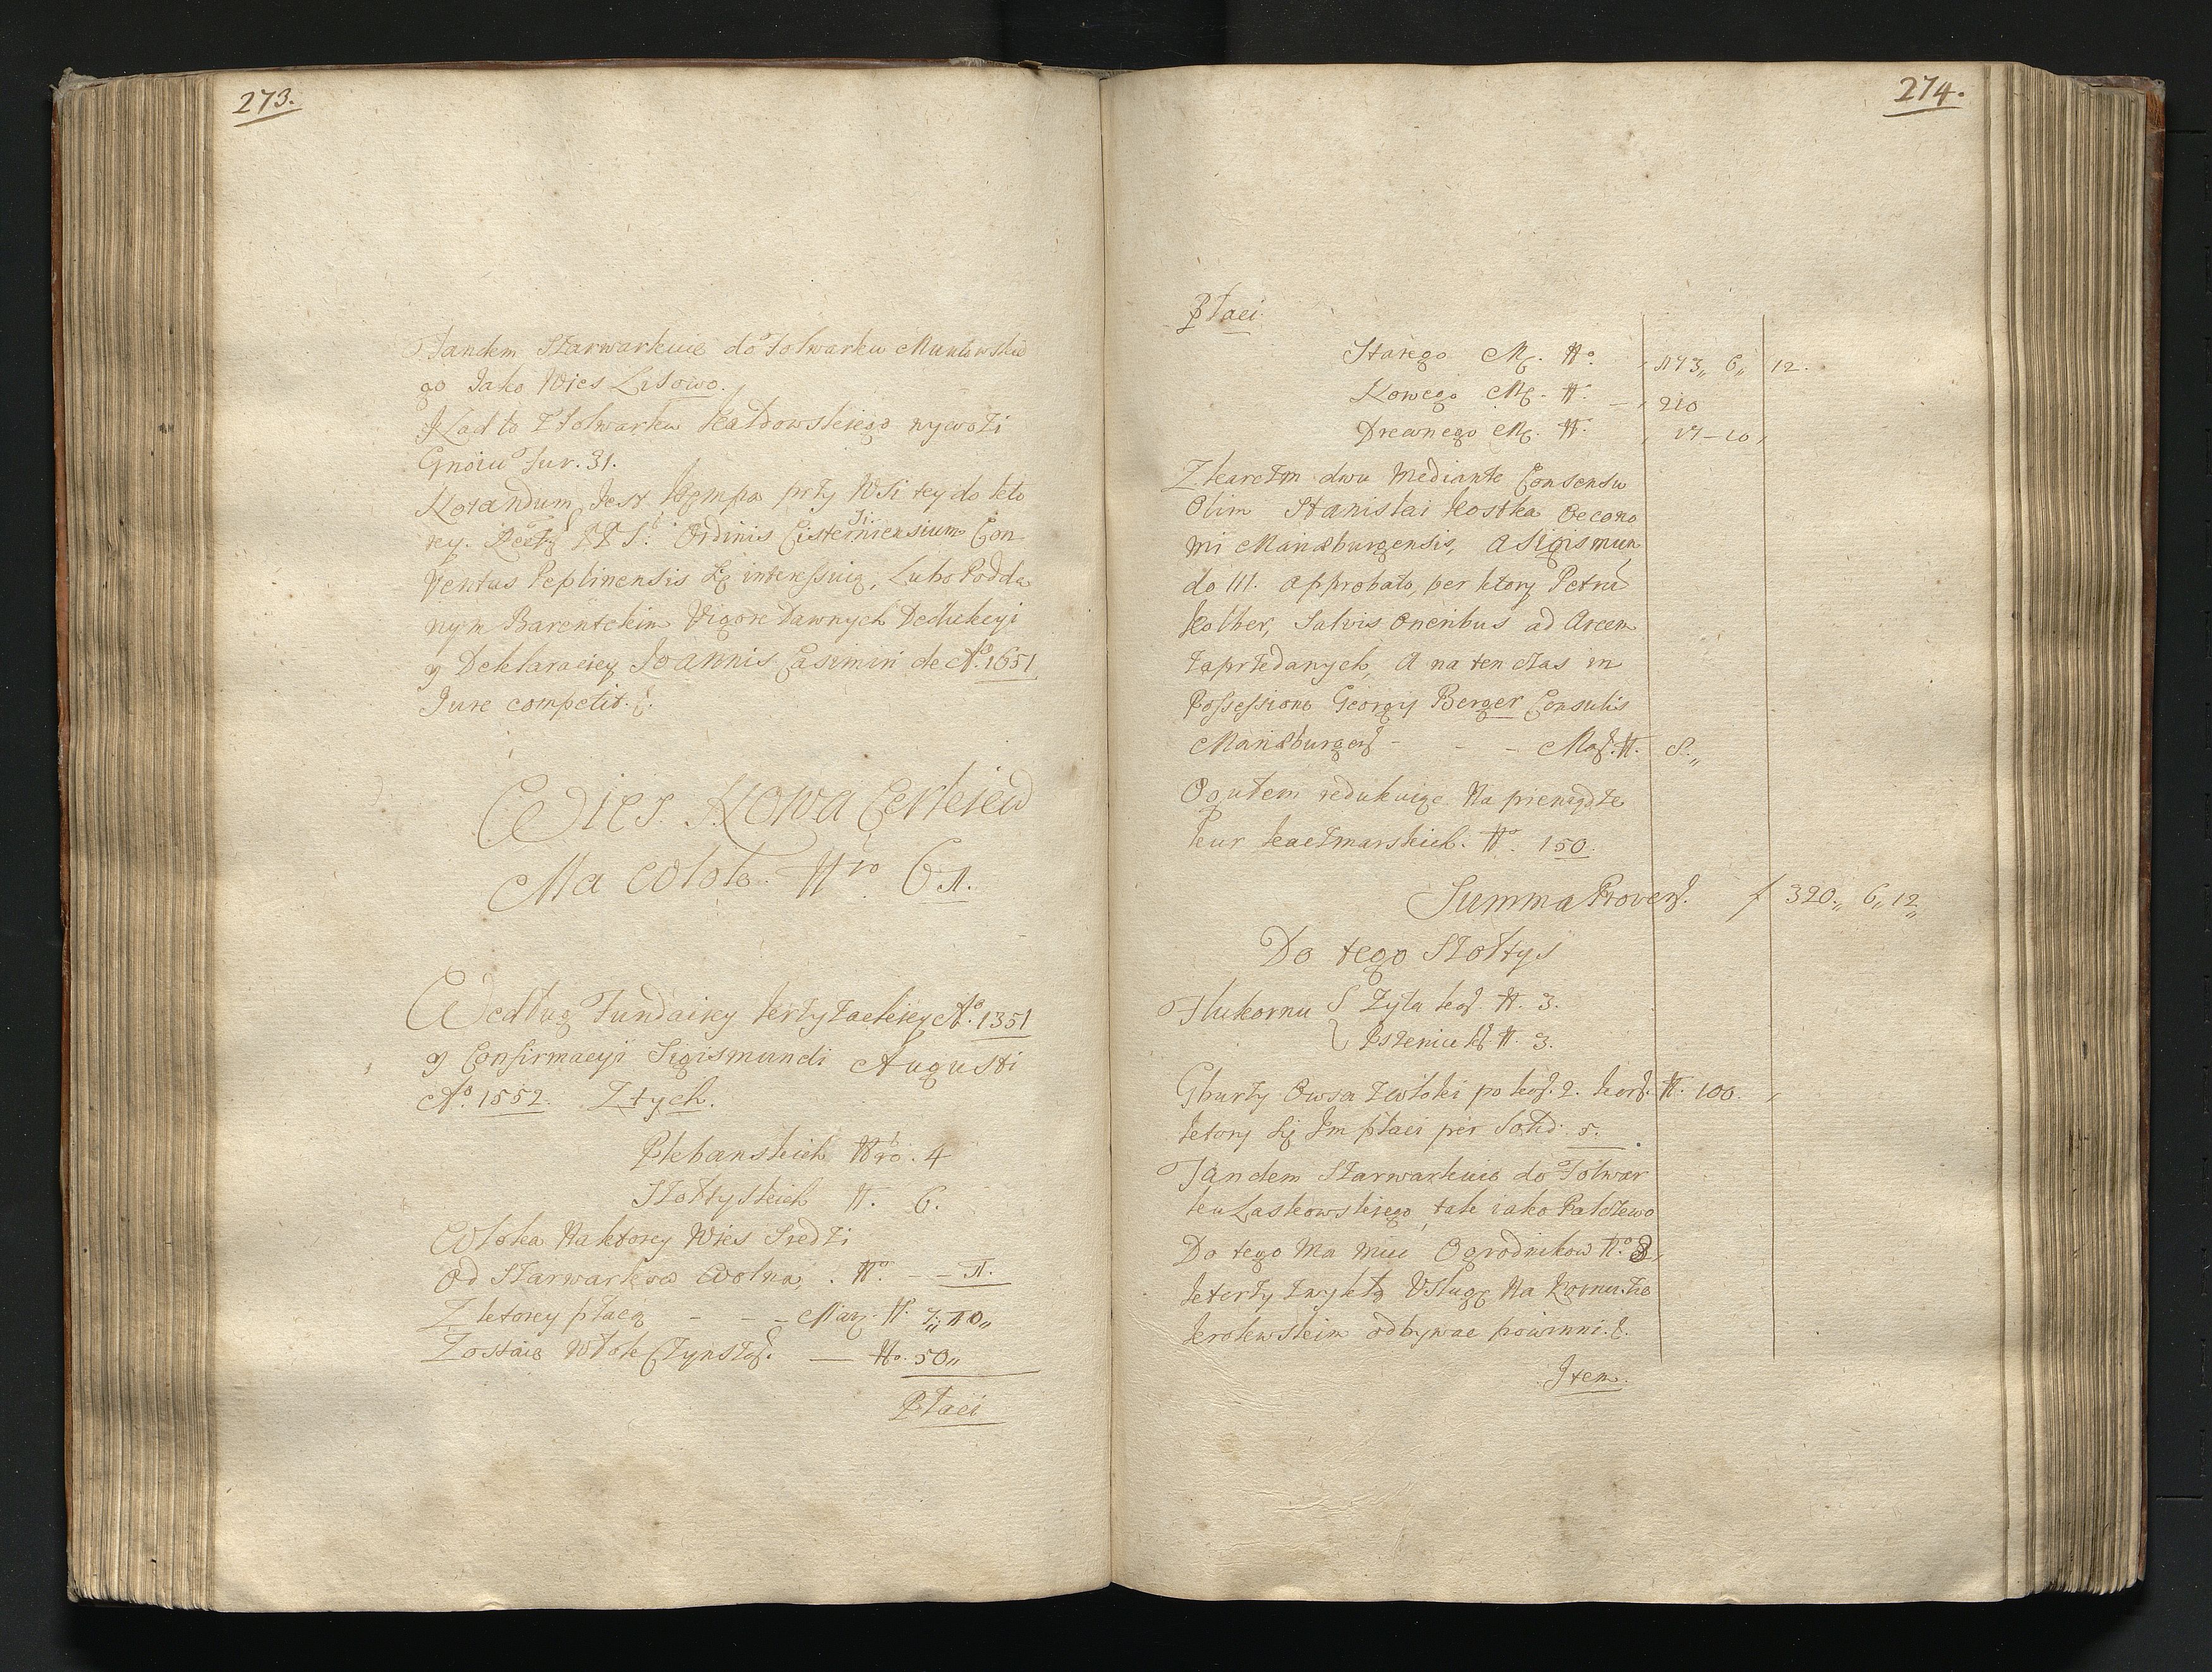 273.
Tandem Szarwarkuie do Folwarku Muntowskie
go Jako Wies Lisowo.
Nad to z Folwarku Kałdowskiego wywozi
Gnoiu Fur. 31.
Notandum Jest Kempa przy Wsi tey do kto
rey. RR Ordinis Cisterniensium Con
ti.
ventus Peplinensis się interessuią, Lubo Podda
nym Barentckim Vigore Dawnych Dedukcyi
y Deklaraciey Joannis Casimiri de Aº. 1651
Jure competit.
Wies. Nowa Cerkiew
Ma Włok Nro 61.
Według Fundaiey krzyżackiey Aº. 1351
y Confirmacyi Sigismundi Augusti
Aº. 1552. Z tych.
Plebanskich Nro. 4
Szołtyskich N. 6.
Włoka Na ktorey Wies Siedzi
od Szarwarkow Wolna, . Nº. – – 1.
Z ktorey płacą - - - Marg. N. 7„ 10„
Zostaie Włok Czynszos. — No. 50„
Płaci
274.
Płaci.
Starego M. Nº. 173„ 6„ 12.
Nowego M. N. – 210
Drewnego M. N. 17 – 10
Z karczm dwu Mediante Consensu
Olim Stanislai Kostka Oecono
mi Mariæburgensis, A Sigismun
do III. Approbato, per ktory Petru
Kolher, Salvis Oneribus ad Arcem
zaprzedanych, A na ten czas in
Possessione Georgij Berger Consulis
Mariæburgens - - - Mag. N. 8.„
Ogułem redukuiąc Na pieniądze
kur kaczmarskich. Nº. 150.
Summa Provent. f 320„ 6„ 12„
Do tego Szołtys
Flukornu Zyta kor. N. 3.
Pszenice kor. N. 3.
Gburzy Owsa z włoki po kor. 2. kors. N. 100.
ktory się Im płaci per Solid. 5.
Tandem Szarwarkuie do Folwar
ku Laskowskiego, tak iako Palczewo
Do tego Ma miec Ogrodnikow Nº. 8,
ktorzy zwykłą Usługę Na Kornuzie
krolewskim odbywac powinni.
Item.